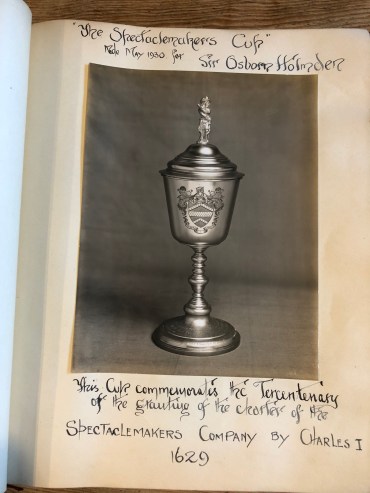 "The Spectaclemakers Cup"
Made May 1930 for
Sir Osborn Holmden
This Cup commemorates the Tercentenary
of the granting of the charter of the
SPECTACLEMAKERS COMPANY BY CHARLES I
1629